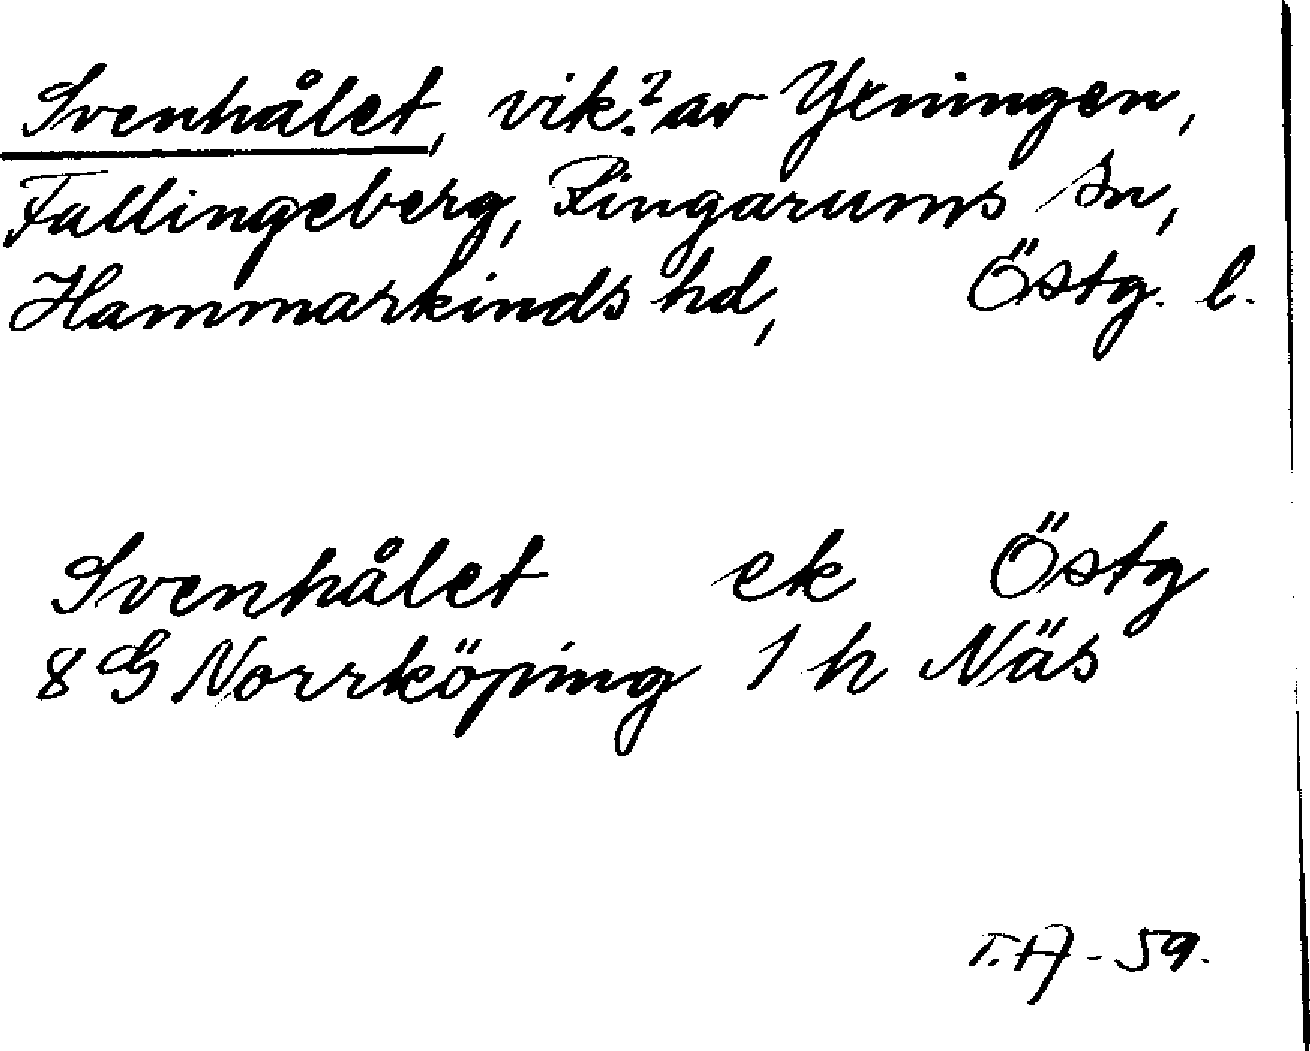 Svenhålet, vik? av Yxningen,
Fallingeberg, Ringarums sn,
Hammarkinds hd, Östg. l.
Svenhålet ek Östg
8 G Norrköping 1 h Näs
T.A - 59.